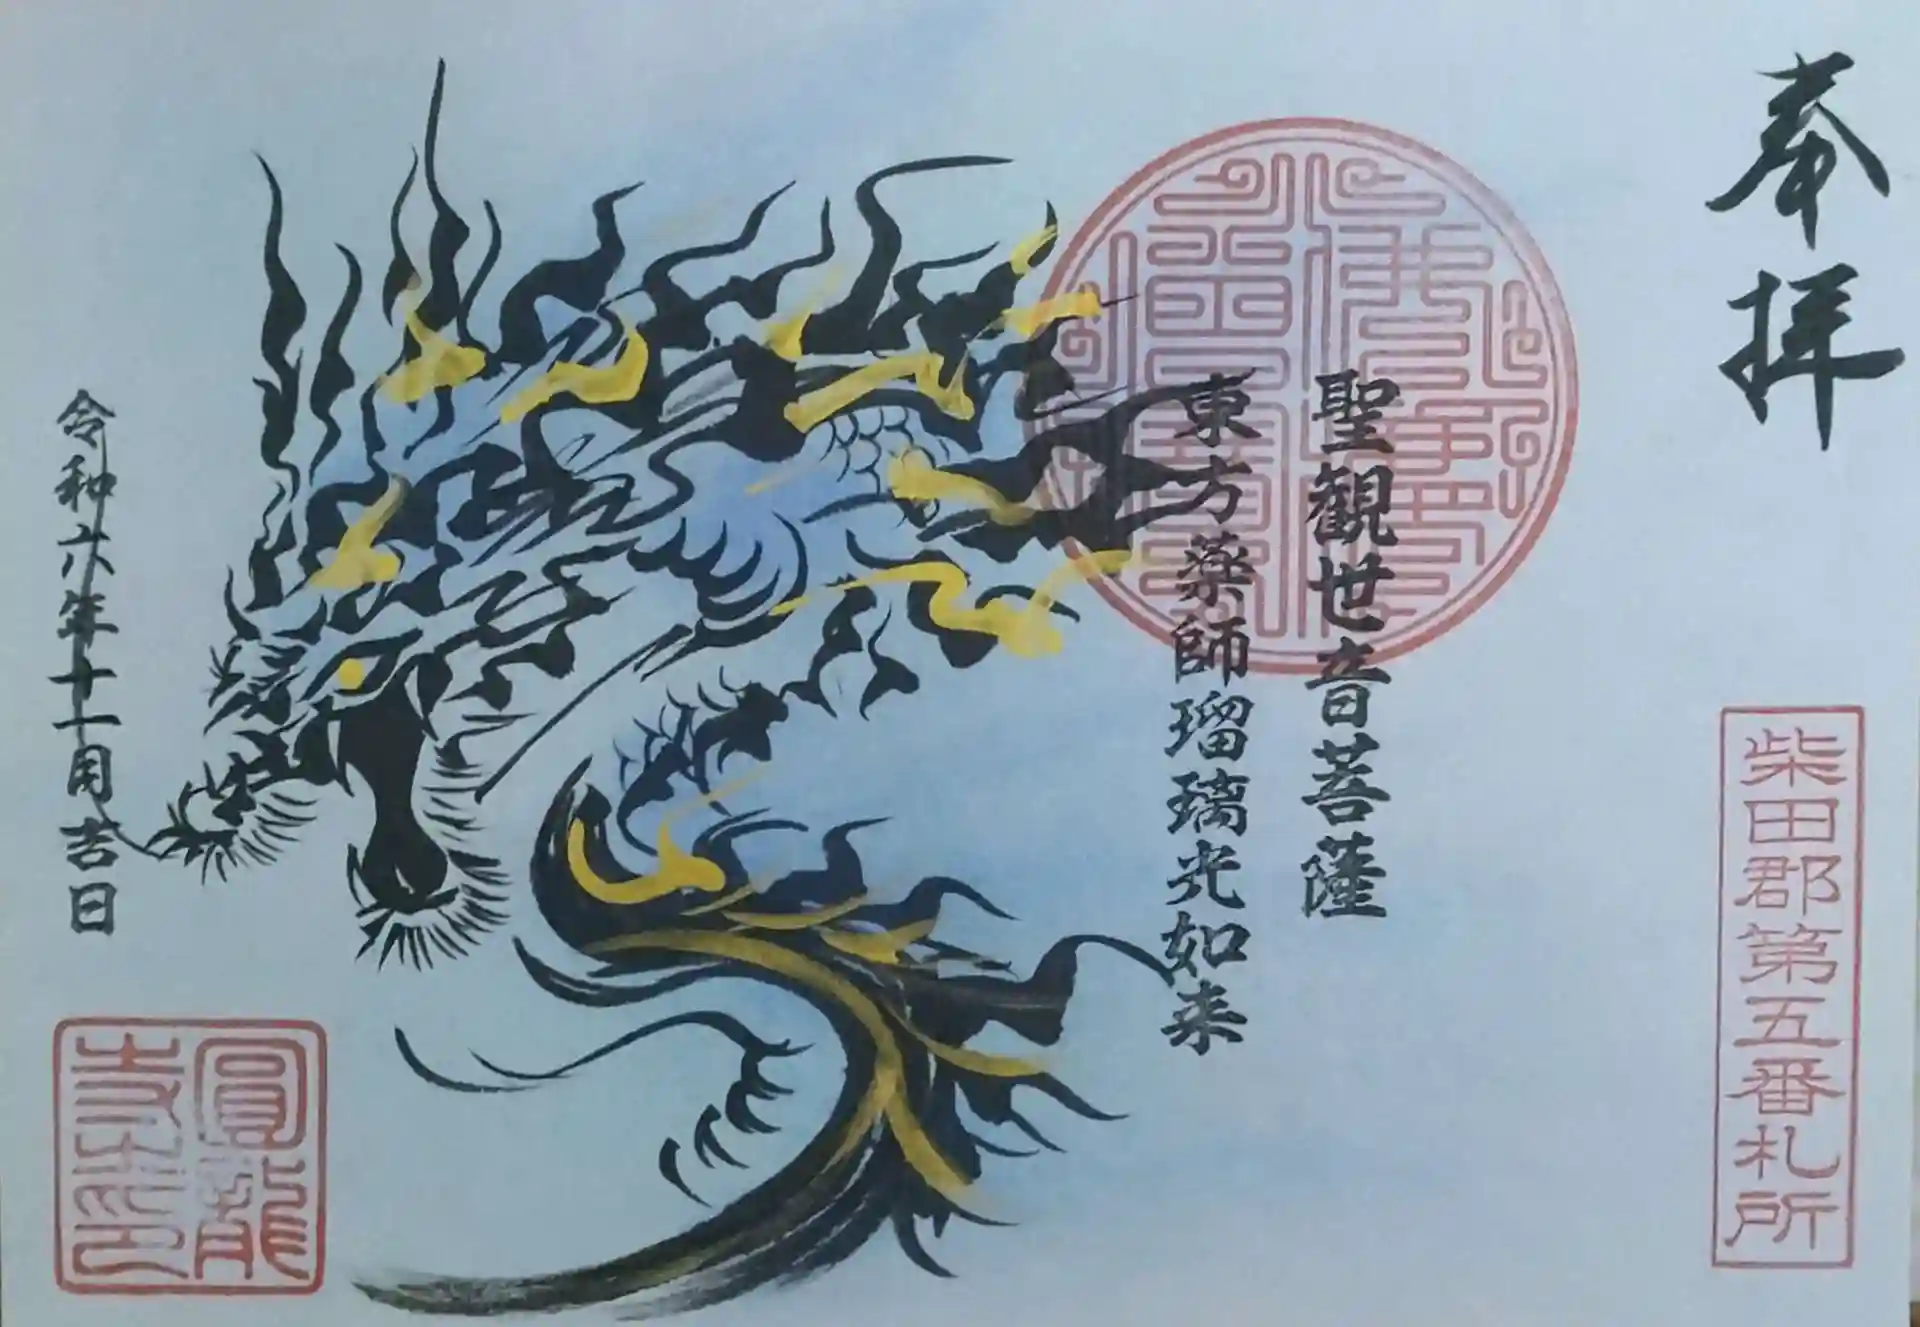 奉拝
柴田郡第五番札所
聖観世音菩薩
東方薬師瑠璃光如来
令和六年十一月吉日
圓龍
寺之印